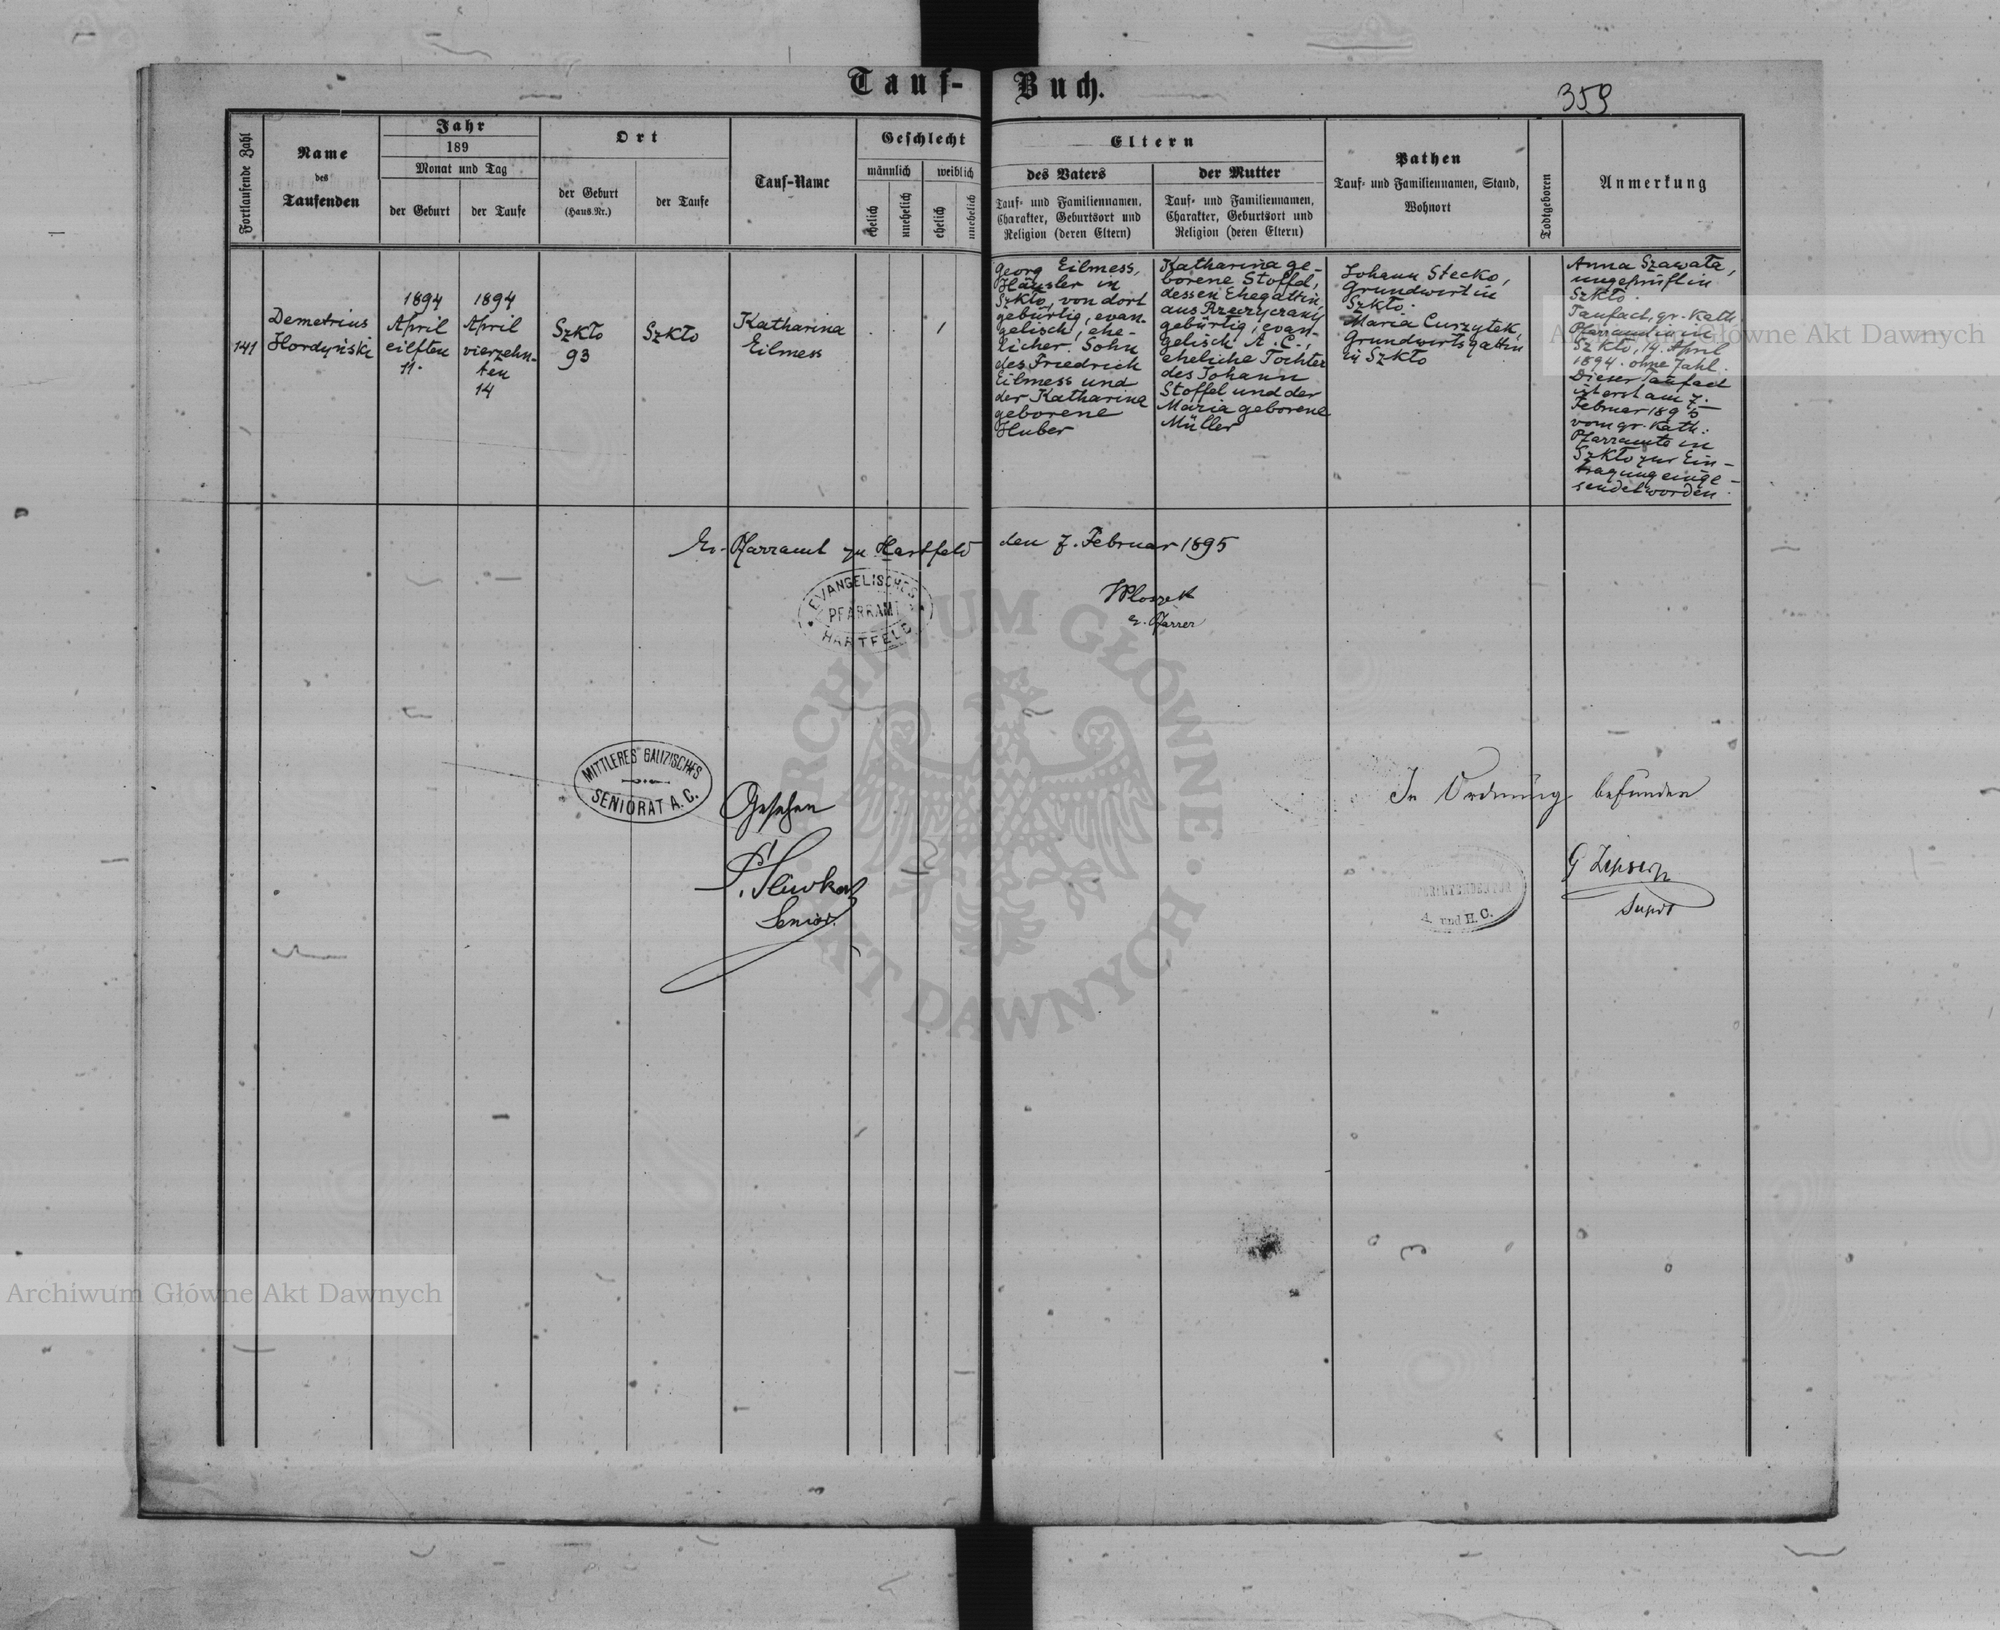 Tauf-Buch.
359
Fortlaufende Zahl
Name
des
Taufenden
Jahr
189
Monat und Tag
der Geburt
der Taufe
Ort
der Geburt
(Haus.Nr.)
der Taufe
Tauf-Name
Geschlecht
männlich
weiblich
ehelich
unehelich
ehelich
unehelich
Eltern
des Vaters
Tauf- und Familiennamen,
Charakter, Geburtsort und
Religion (deren Eltern)
der Mutter
Tauf- und Familiennamen,
Charakter, Geburtsort und
Religion (deren Eltern)
Pathen
Tauf- und Familiennamen, Stand,
Wohnort
Todtgeboren
Anmerkung
141
Demetrius
Hordyński
1894
April
eilften
11.
1894
April
vierzehn-
ten
14
Szkło
93
Szkło
Katharina
Eilmess
1
Georg Eilmess,
Häusler in
Szkło, von dort
gebürtig, evan-
gelisch, ehe-
licher Sohn
des Friedrich
Eilmess und
der Katharina
geborene
Huber
Katharina ge-
borene Stoffel,
dessen Ehegattin,
aus Rzeczyczany
gebürtig, evan-
gelisch A. C.,
eheliche Tochter
des Johann
Stoffel und der
Maria geborene
Müller
Johann Stecko,
Grundwirt in
Szkło.
Maria Curzytek,
Grundwirtsgattin
in Szkło
Anna Szawała,
ungeprüft in
Szkło.
Taufact, gr. Kath.
in
Szkło, 14. April
1894. ohne Zahl.
Dieser Taufact
ist erst am 7.
Februar 1895
vom gr. Kath.
Pfarramte in
Szkło zur Ein-
tragung einge-
sendet worden.
Ev. Pfarramt zu Hartfeld den 7. Februar 1895
EVANGELISCHES
PFARRAMT
HARTFELD
ev. Pfarrer
MITTLERES GALIZISCHES
SENIORAT A. C.
Gesehen
Senior.
In Ordnung befunden
SUPERINTENDENTUR
A. und H. C.
G Zipser
Supdt
ARCHIWUM GŁÓWNE AKT DAWNYCH
Archiwum Główne Akt Dawnych
Archiwum Główne Akt Dawnych